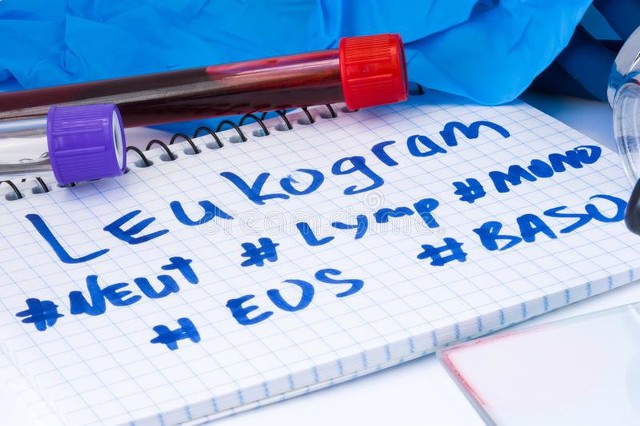 Leukogram
#Neut #Lymp #Mono
#EOS #BASO